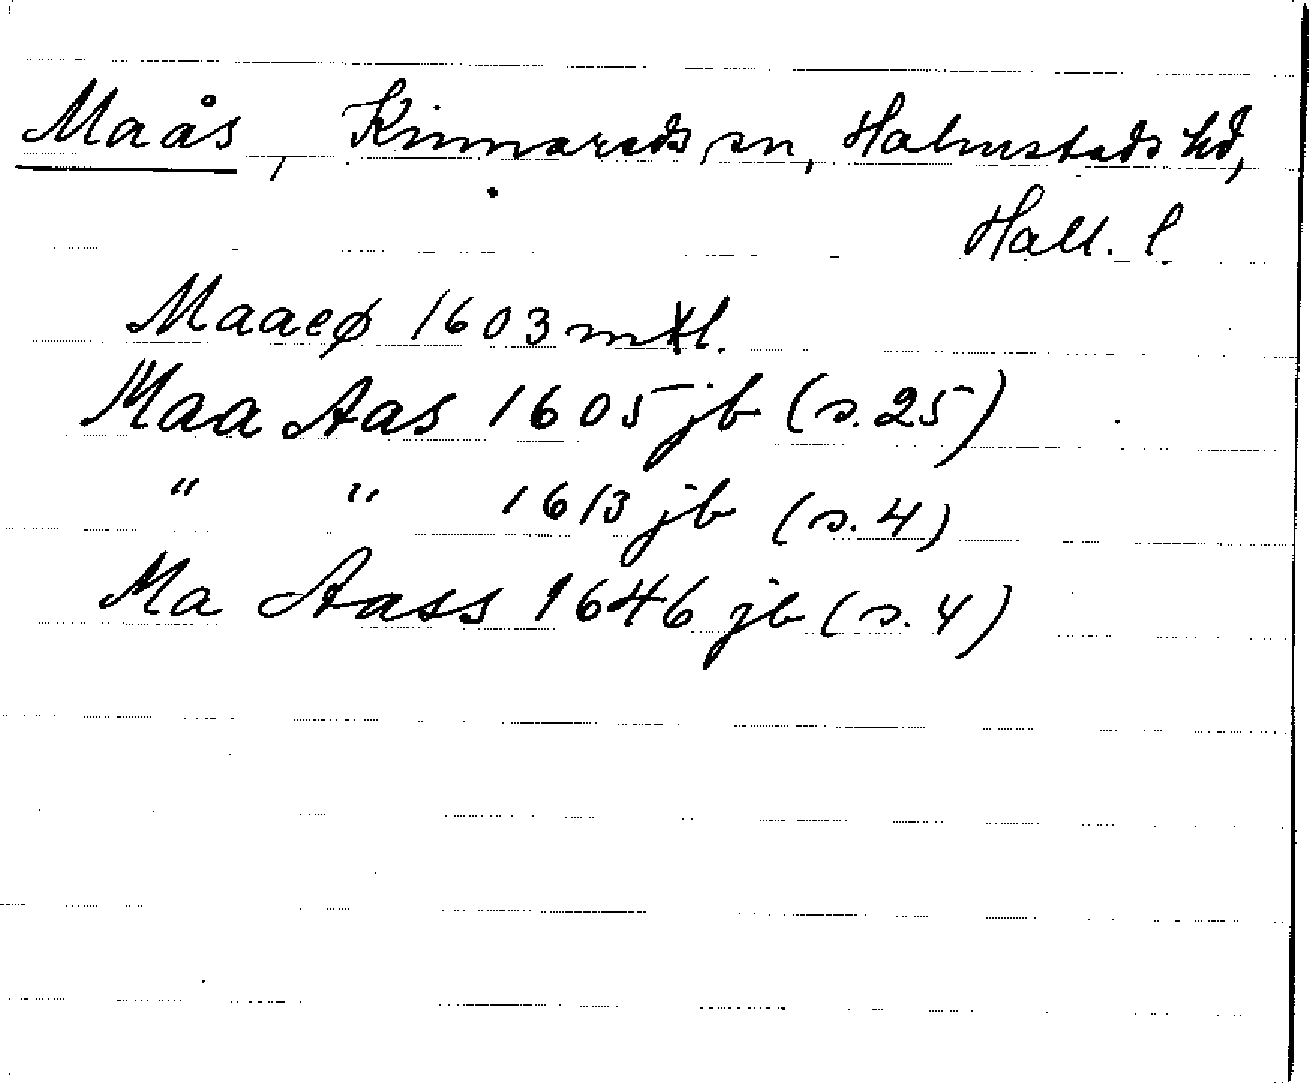 Maås, Kinnareds sn, Halmstads hd,
Hall. l.
Maaeø 1603 mtl.
Maa Aas 1605 jb (s. 25)
" " 1613 jb (s. 4)
Ma Aass 1646 jb (s. 4)